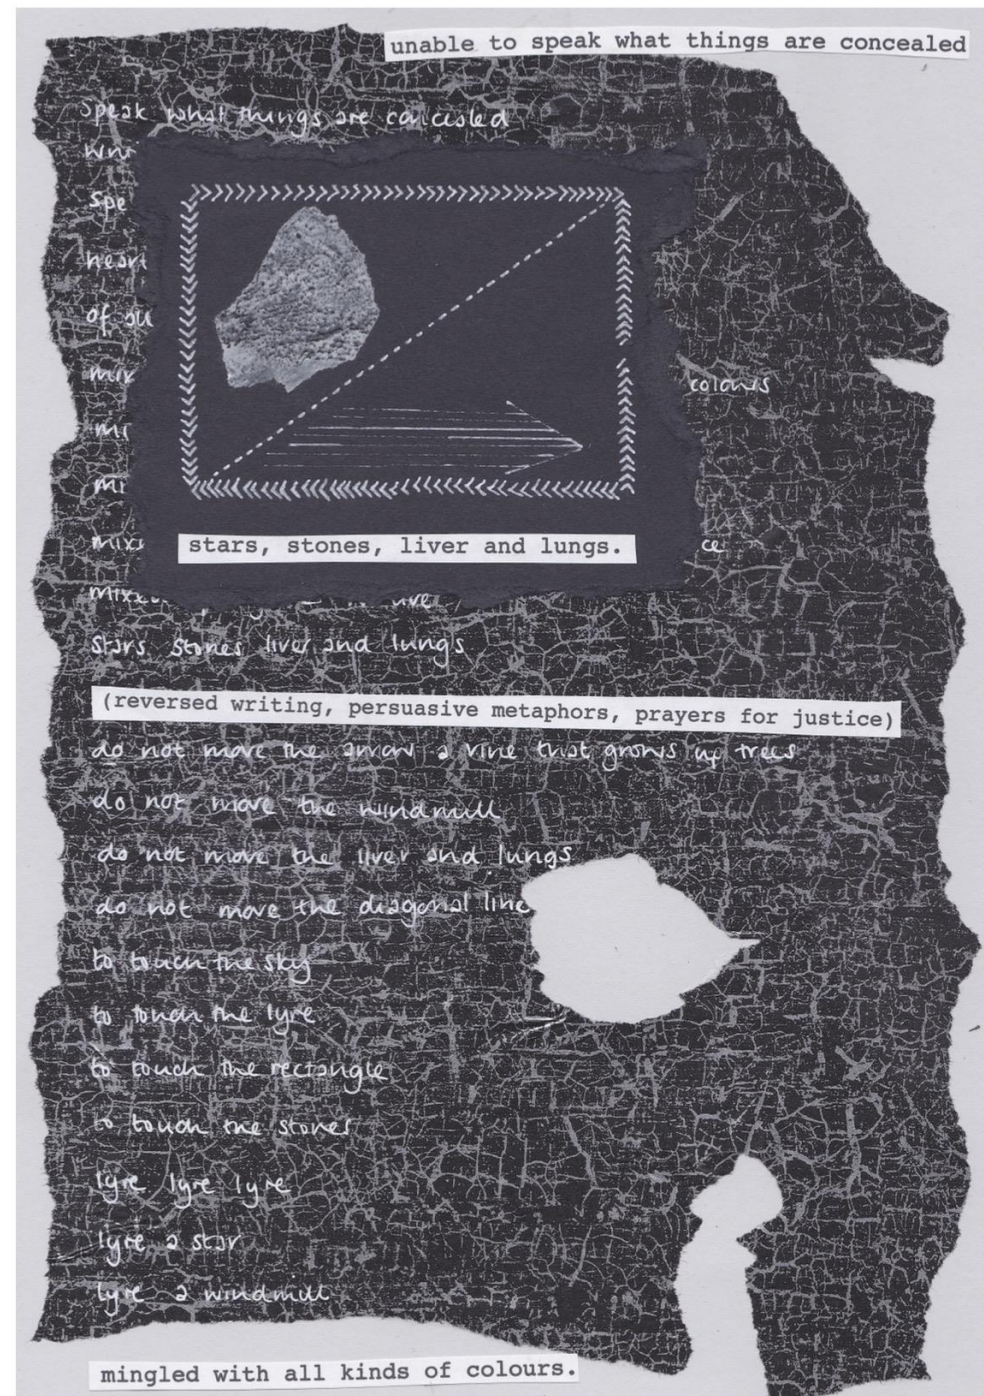 unable to speak what things are concealed
speak what things are concealed
spe
heart
of su
colours
mi
stars, stones, liver and lungs.
ce
stars stones liver and lungs
(reversed writing, persuasive metaphors, prayers for justice)
do not move the arrow a vine that grows up trees
do not move the windmill
do not move the liver and lungs
do not move the diagonal line
to touch the sky
to touch the lyre
to touch the rectangle
to touch the stones
lyre lyre lyre
lyre a star
lyre a windmill
mingled with all kinds of colours.